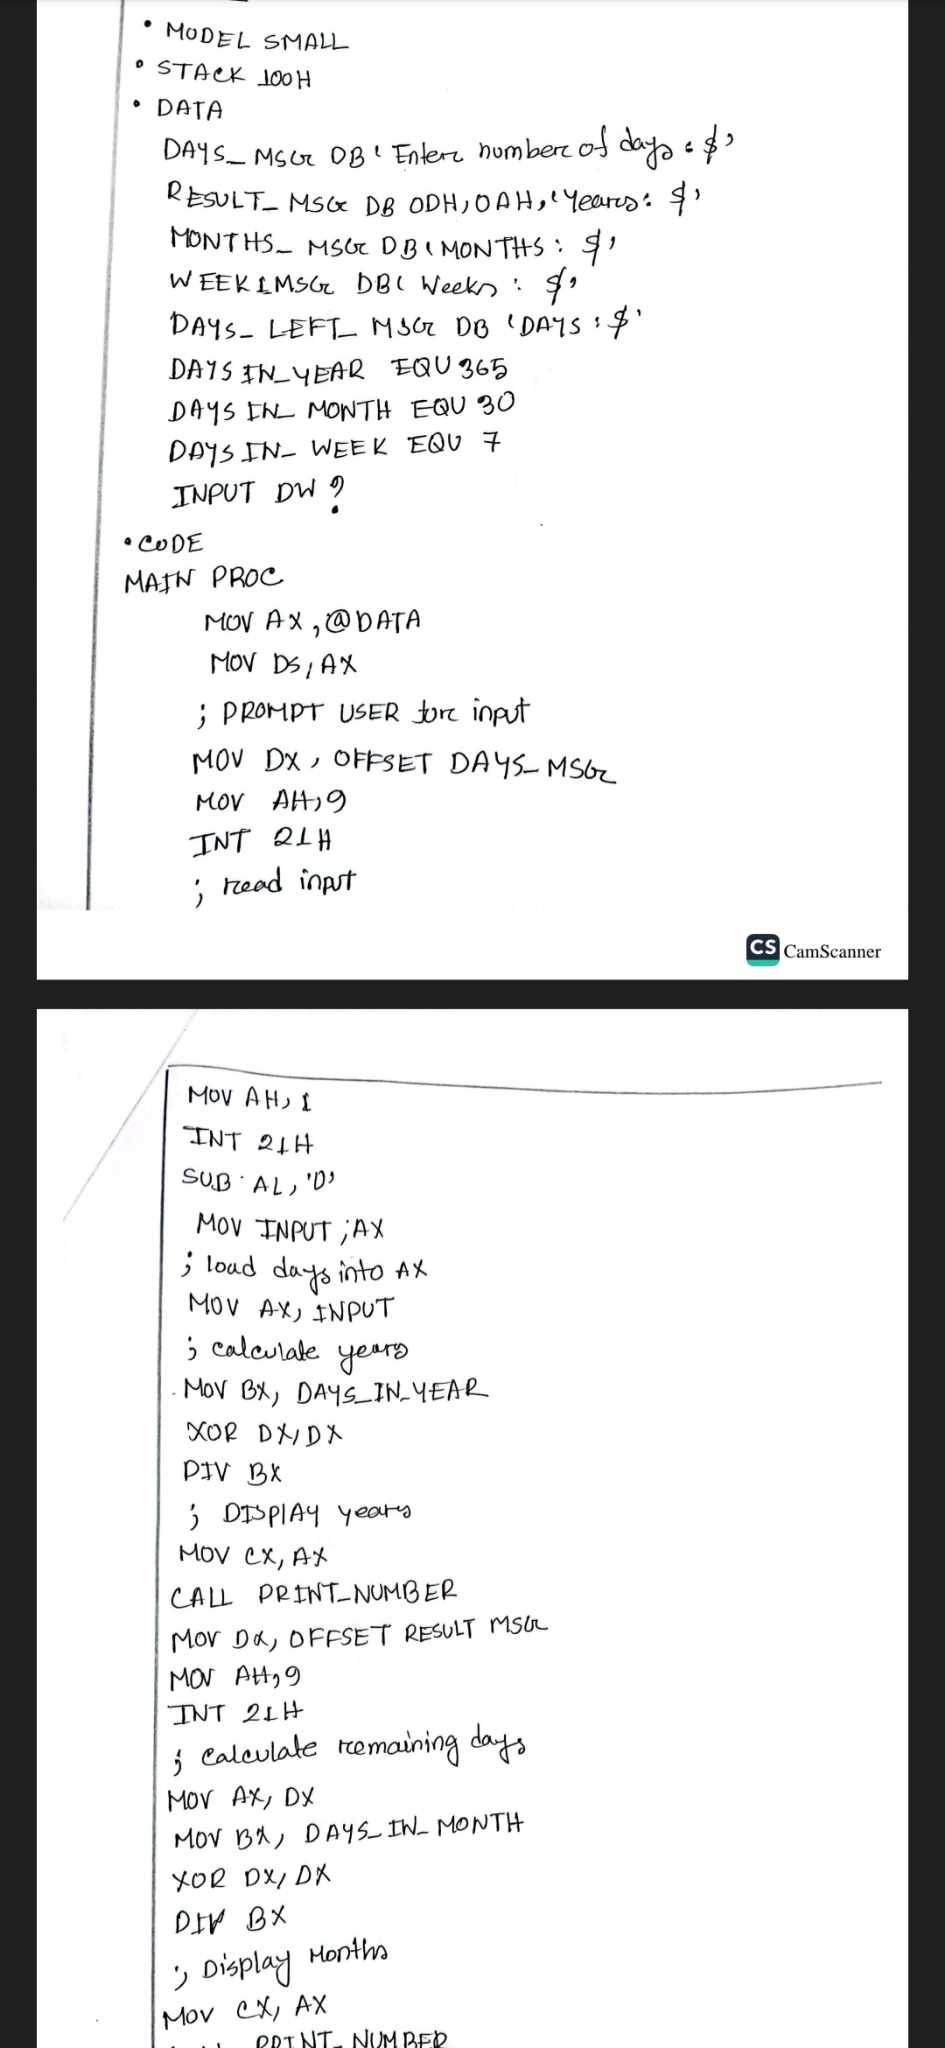 • MODEL SMALL
• STACK 100H
• DATA
DAYS_MSG DB 'Enter number of days : $'
RESULT_ MSG DB 0DH,0AH,'Years: $'
MONTHS_ MSG DB 'MONTHS : $'
WEEK1MSG DB' Weeks : $'
DAYS_ LEFT_ MSG DB 'DAYS : $'
DAYS IN_YEAR EQU 365
DAYS IN_ MONTH EQU 30
DAYS IN_ WEEK EQU 7
INPUT DW ?
•CODE
MAIN PROC
MOV AX,@DATA
MOV DS,AX
; PROMPT USER for input
MOV DX, OFFSET DAYS_MSG
MOV AH,9
INT 21H
; read input
CS CamScanner
MOV AH, 1
INT 21H
SUB AL, '0'
MOV INPUT ;AX
; load days into AX
MOV AX, INPUT
; calculate years
MOV BX, DAYS_IN_YEAR
XOR DX,DX
DIV BX
; DISPLAY years
MOV CX, AX
CALL PRINT_NUMBER
MOV DX, OFFSET RESULT MSG
MOV AH,9
INT 21H
; calculate remaining days
MOV AX, DX
MOV BX, DAYS_IN_MONTH
XOR DX, DX
DIV BX
; Display Months
MOV CX, AX
PRINT_NUMBER